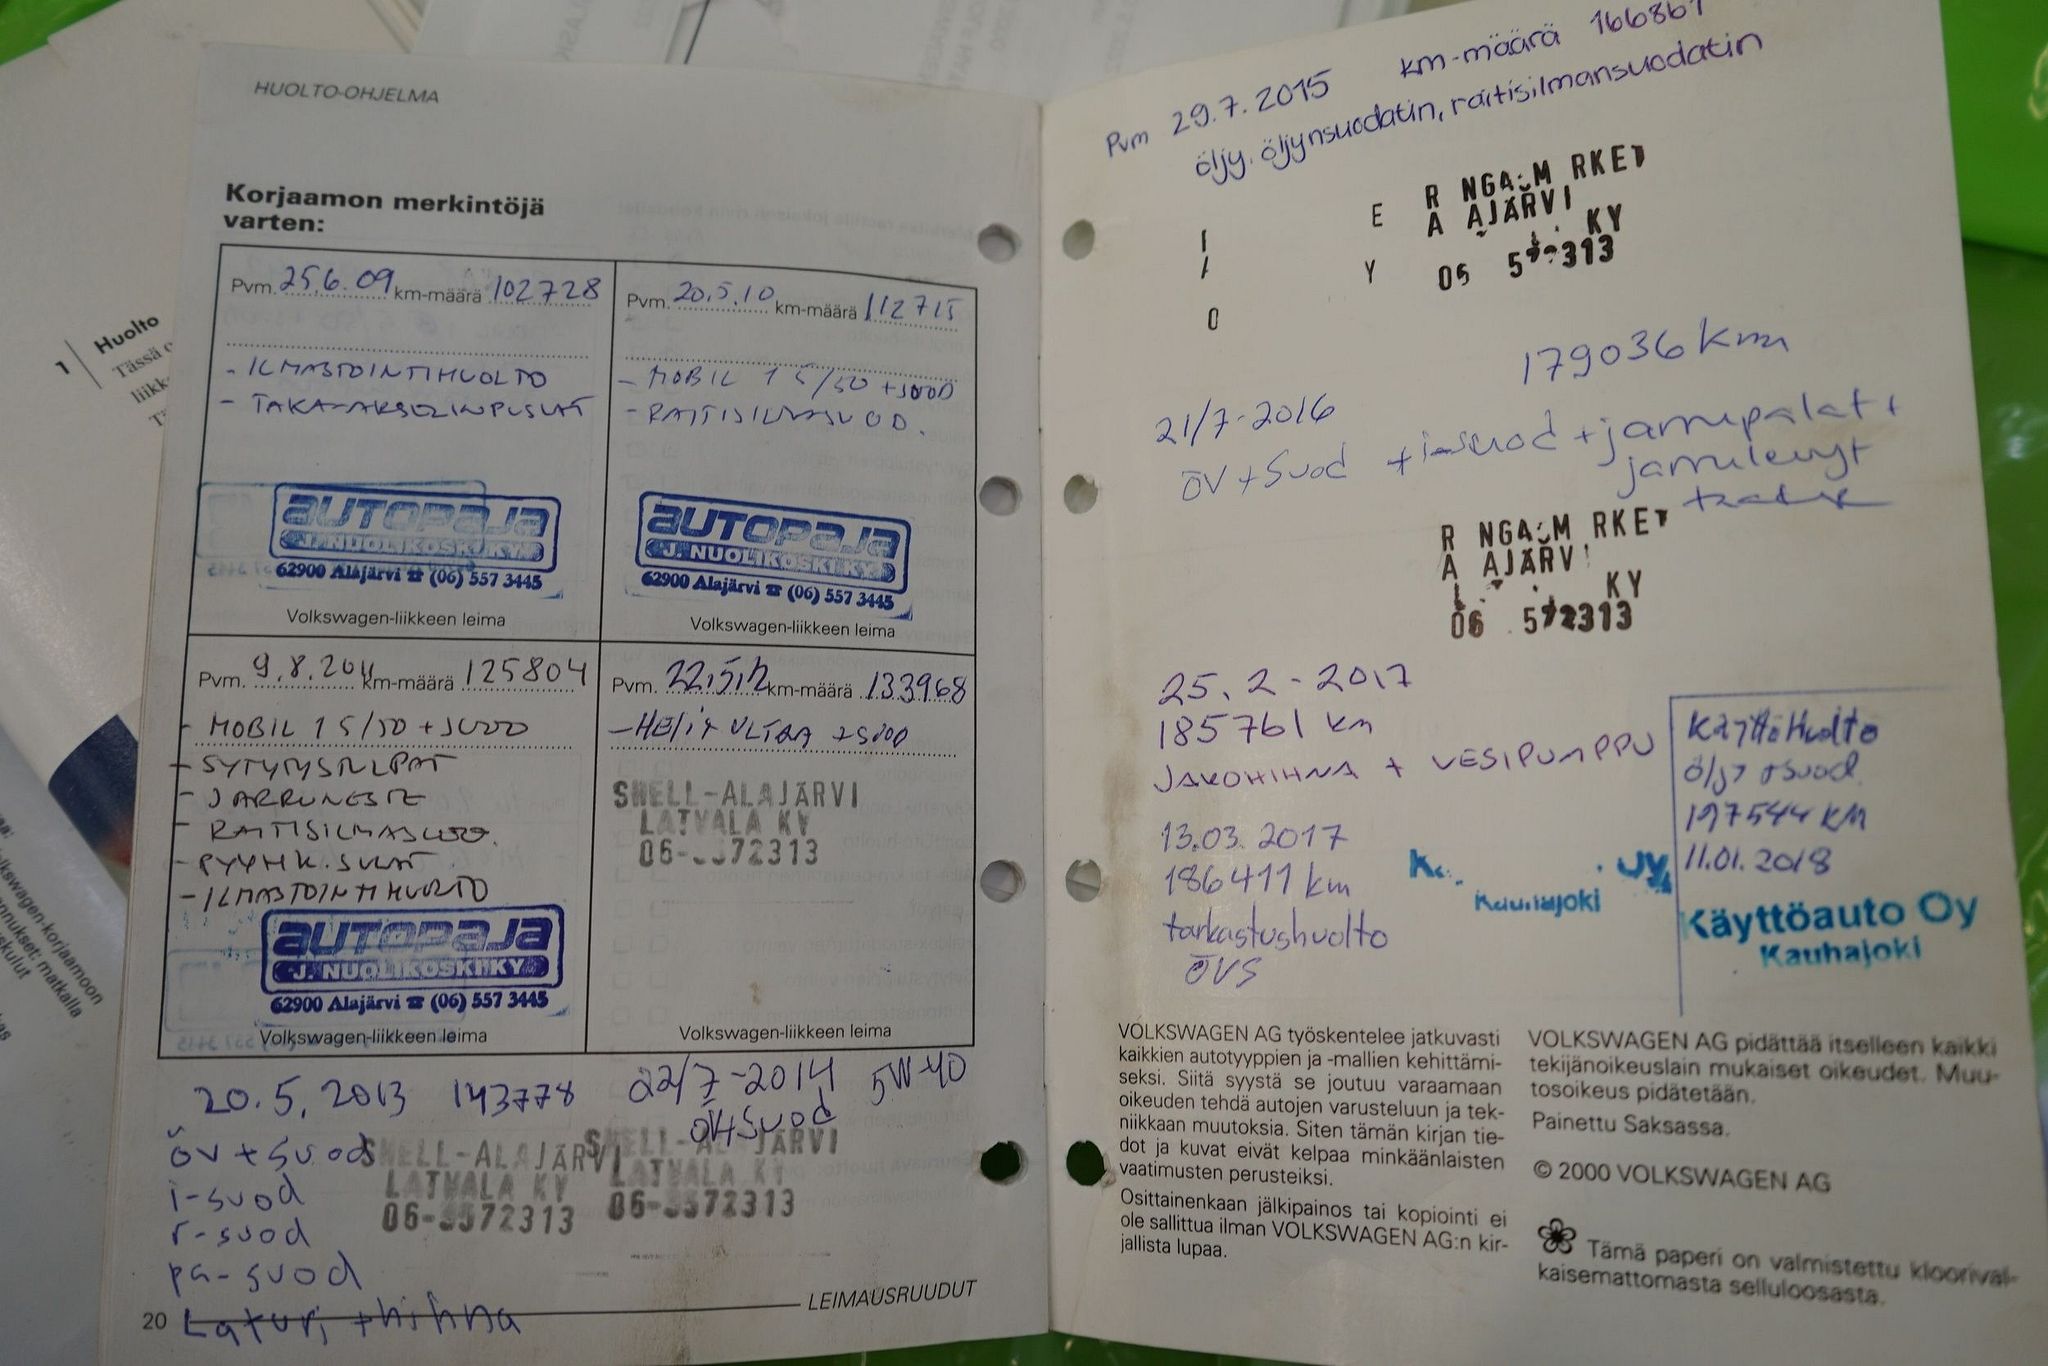 HUOLTO-OHJELMA
Korjaamon merkintöjä
varten:
Pvm. 25.6.09 km-määrä 102728
- ILMASTOINTIHUOLTO
- TAKA-AKSELINPUSLAT
autopaja
J. NUOLIKOSKI KY
62900 Alajärvi ☎ (06) 557 3445
Volkswagen-liikkeen leima
Pvm. 20.5.10 km-määrä 112715
- MOBIL 1 5/50 + SUOD
- RAITISILMASUOD.
autopaja
J. NUOLIKOSKI KY
62900 Alajärvi ☎ (06) 557 3445
Volkswagen-liikkeen leima
Pvm. 9.8.2011 km-määrä 125804
- MOBIL 1 5/50 + SUOD
- SYTYTYSTULPAT
- JARRUNESTE
- RAITISILMASUOD.
- PYYHK. SULAT
- ILMASTOINTIHUOLTO
autopaja
J. NUOLIKOSKI KY
62900 Alajärvi ☎ (06) 557 3445
Volkswagen-liikkeen leima
Pvm. 22.5.12 km-määrä 133968
- HELIX ULTRA + SUOD
SHELL-ALAJÄRVI
LATVALA KY
06-5572313
Volkswagen-liikkeen leima
20.5.2013 143778
öv + suod
i-suod
r-suod
pa-suod
Laturi + hihna
SHELL-ALAJÄRVI
LATVALA KY
06-5572313
22/7-2014 5W-40
öv+suod
SHELL-ALAJÄRVI
LATVALA KY
06-5572313
20
LEIMAUSRUUDUT
Pvm 29.7.2015 km-määrä 166861
öljy, öljynsuodatin, raitisilmansuodatin
R NGA M RKET
A AJÄRVI
KY
06 572313
179036 km
21/7-2016
ÖV + Suod + i-suod + jarrupalat +
jarrulevyt
R NGA M RKET
A AJÄRV
KY
06 572313
25.2-2017
185761 km
JAKOHIHNA + VESIPUMPPU
13.03.2017
186411 km
tarkastushuolto
ÖVS
Kauhajoki
Käyttöhuolto
öljy + suod.
197544 KM
11.01.2018
Käyttöauto Oy
Kauhajoki
VOLKSWAGEN AG työskentelee jatkuvasti
kaikkien autotyyppien ja -mallien kehittämi-
seksi. Siitä syystä se joutuu varaamaan
oikeuden tehdä autojen varusteluun ja tek-
niikkaan muutoksia. Siten tämän kirjan tie-
dot ja kuvat eivät kelpaa minkäänlaisten
vaatimusten perusteiksi.
Osittainenkaan jälkipainos tai kopiointi ei
ole sallittua ilman VOLKSWAGEN AG:n kir-
jallista lupaa.
VOLKSWAGEN AG pidättää itselleen kaikki
tekijänoikeuslain mukaiset oikeudet. Muu-
tosoikeus pidätetään.
Painettu Saksassa.
© 2000 VOLKSWAGEN AG
Tämä paperi on valmistettu kloorival-
kaisemattomasta selluloosasta.
1 Huolto
Tässä